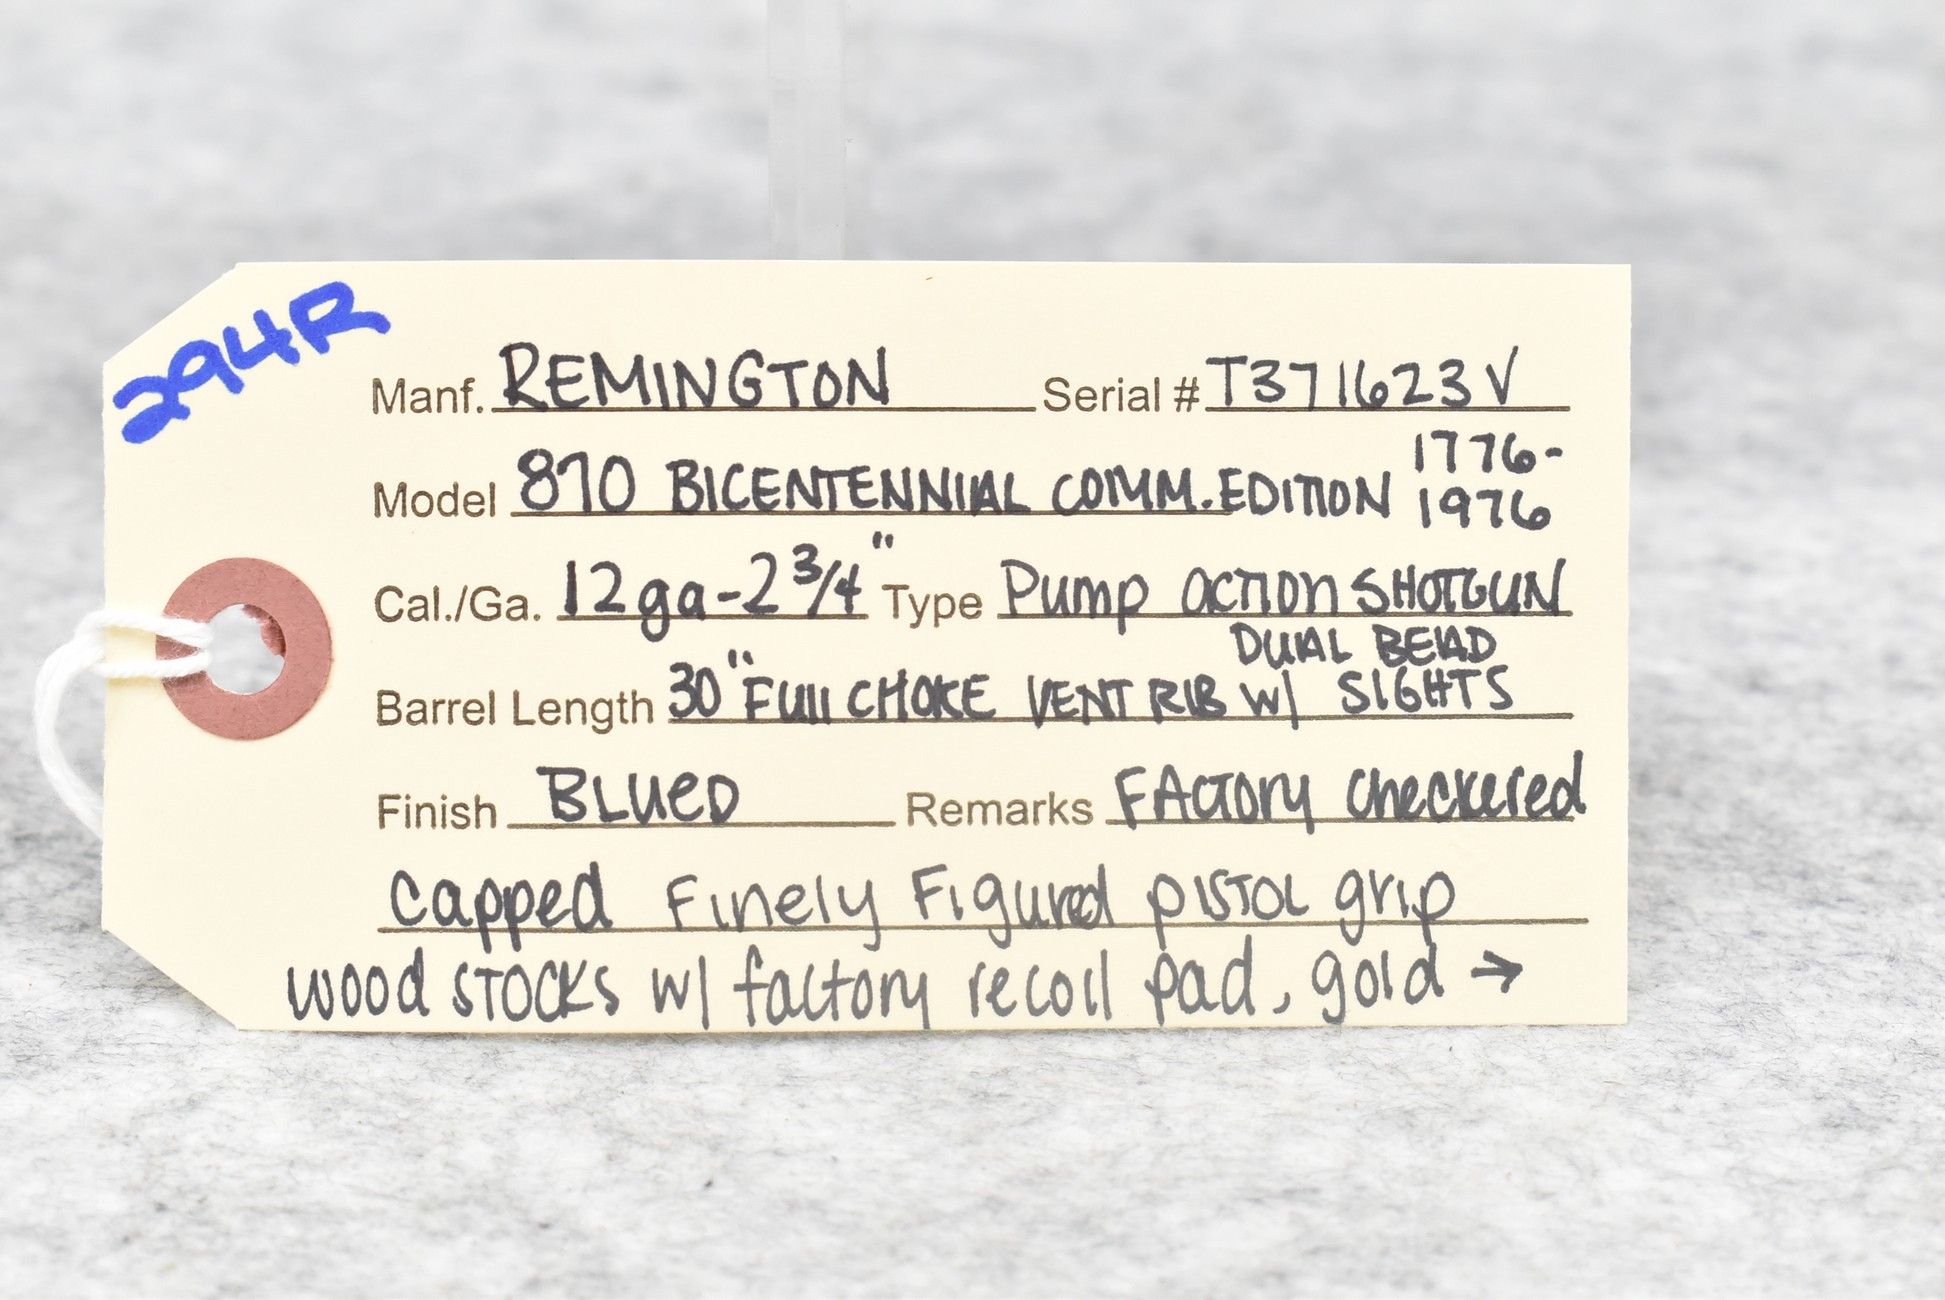 294R
Manf. REMINGTON Serial # T371623V
Model 870 BICENTENNIAL COMM. EDITION 1776-
1976
Cal./Ga. 12ga-2 3/4" Type Pump action SHOTGUN
DUAL BEAD
Barrel Length 30" Full CHOKE VENT RIB w/ SIGHTS
Finish BLUED Remarks FActory checkered
capped Finely Figured pISTOL grip
wood STOCKS w/ factory recoil pad, gold →